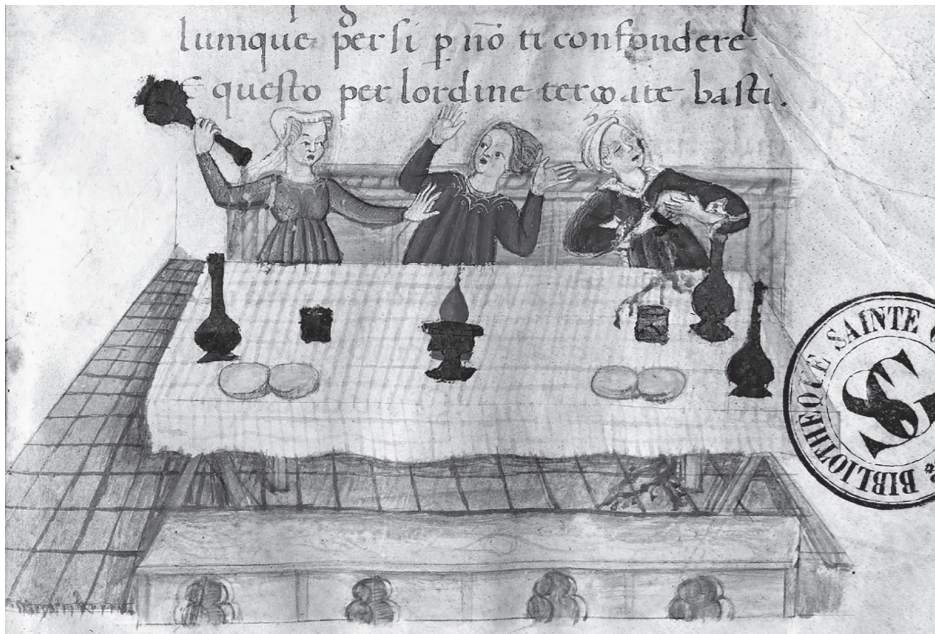 lumque per si ꝑ nō ti confondere
E questo per lordine basti.
BIBLIOTHEQVE SAINTE G
SG